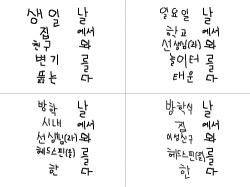 생일 날
집 에서
친구 와
변기 를
뚫는 다
일요일 날
학교 에서
선생님(과) 와
놀이터 를
태운 다
방학 날
시내 에서
선생님(과) 와
헤드스핀(을) 를
한 다
방학식 날
집 에서
이성친구 와
헤드스핀(을) 를
한 다